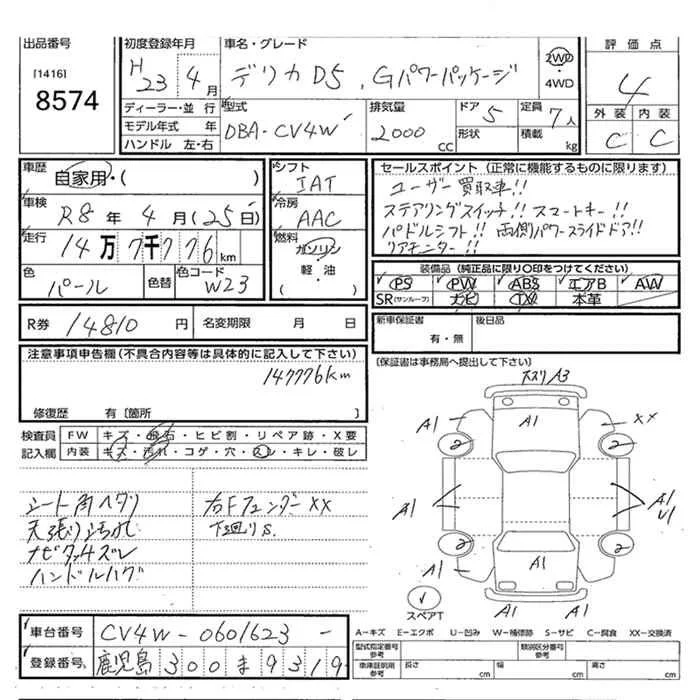 出品番号
[1416]
8574
初度登録年月
H23年4月
車名・グレード
デリカD5、Gパワーパッケージ
2WD
・
4WD
評価点
4
外装 内装
C C
ディーラー・並 行
モデル年式 年
ハンドル 左・右
型式
DBA-CV4W
排気量
2000 CC
ドア 5
形状
定員 7人
積載 kg
車歴
自家用・( )
車検
R8年 4月(25日)
走行
14万7千776km
色
パール
色替
色コード
W23
シフト
IAT
冷房
AAC
燃料
ガソリン
軽・油
( )
セールスポイント(正常に機能するものに限ります)
ユーザー買取車!!
ステアリングスイッチ!! スマートキー!!
パドルシフト!! 両側パワースライドドア!!
リアモニター!!
装備品(純正品に限り○印をつけてください)
PS PW ABS エアB AW
SR(サンルーフ) ナビ TV 本革
R券 14810円
名変期限 月 日
新車保証書
有・無
後日品
(保証書は事務局へ提出して下さい)
注意事項申告欄(不具合内容等は具体的に記入して下さい)
147776km
修復歴 有〔箇所 〕
検査員
記入欄
FW キズ・飛石・ヒビ割・リペア跡・X要
内装 キズ・汚れ・コゲ・穴・スレ・キレ・破レ
シート角ヘタリ
天張り汚れ
ナビタッチズレ
ハンドルハゲ
右FフェンダーXX
下廻りS
A3
A1 A1 XX
2 2
A1 A1
U1
2 2
A1 A1
スペアT
A1 A1
A-キズ E-エクボ U-凹み W-補修跡 S-サビ C-腐食 XX-交換済
車台番号
CV4W-0601623-
登録番号
鹿児島300ま9319
型式指定番号
参考
類別区分番号
参考
車庫証明用
参考
長さ cm
幅 cm
高さ cm